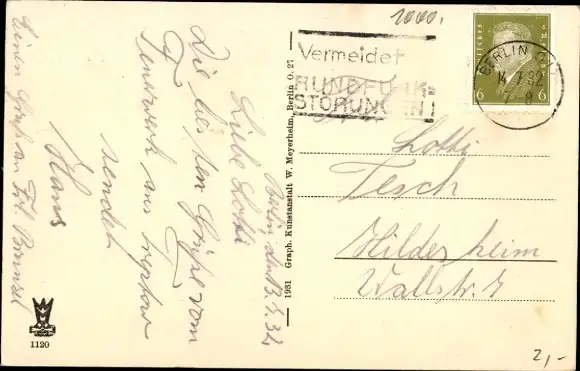 1000.
Vermeidet
RUNDFUNK-
STÖRUNGEN
BERLIN
14.7.32
7-8
6 6
Lotti
Tesch
Hildesheim
Wallstr. 7
Berlin, den 13.7.32
Liebe Lotti
Die besten Grüße vom
Feuerwerk aus Treptow
sendet
Hans
Einen Gruß an Frl.
1931 Graph. Kunstanstalt W. Meyerheim, Berlin O. 27
1120
2,-